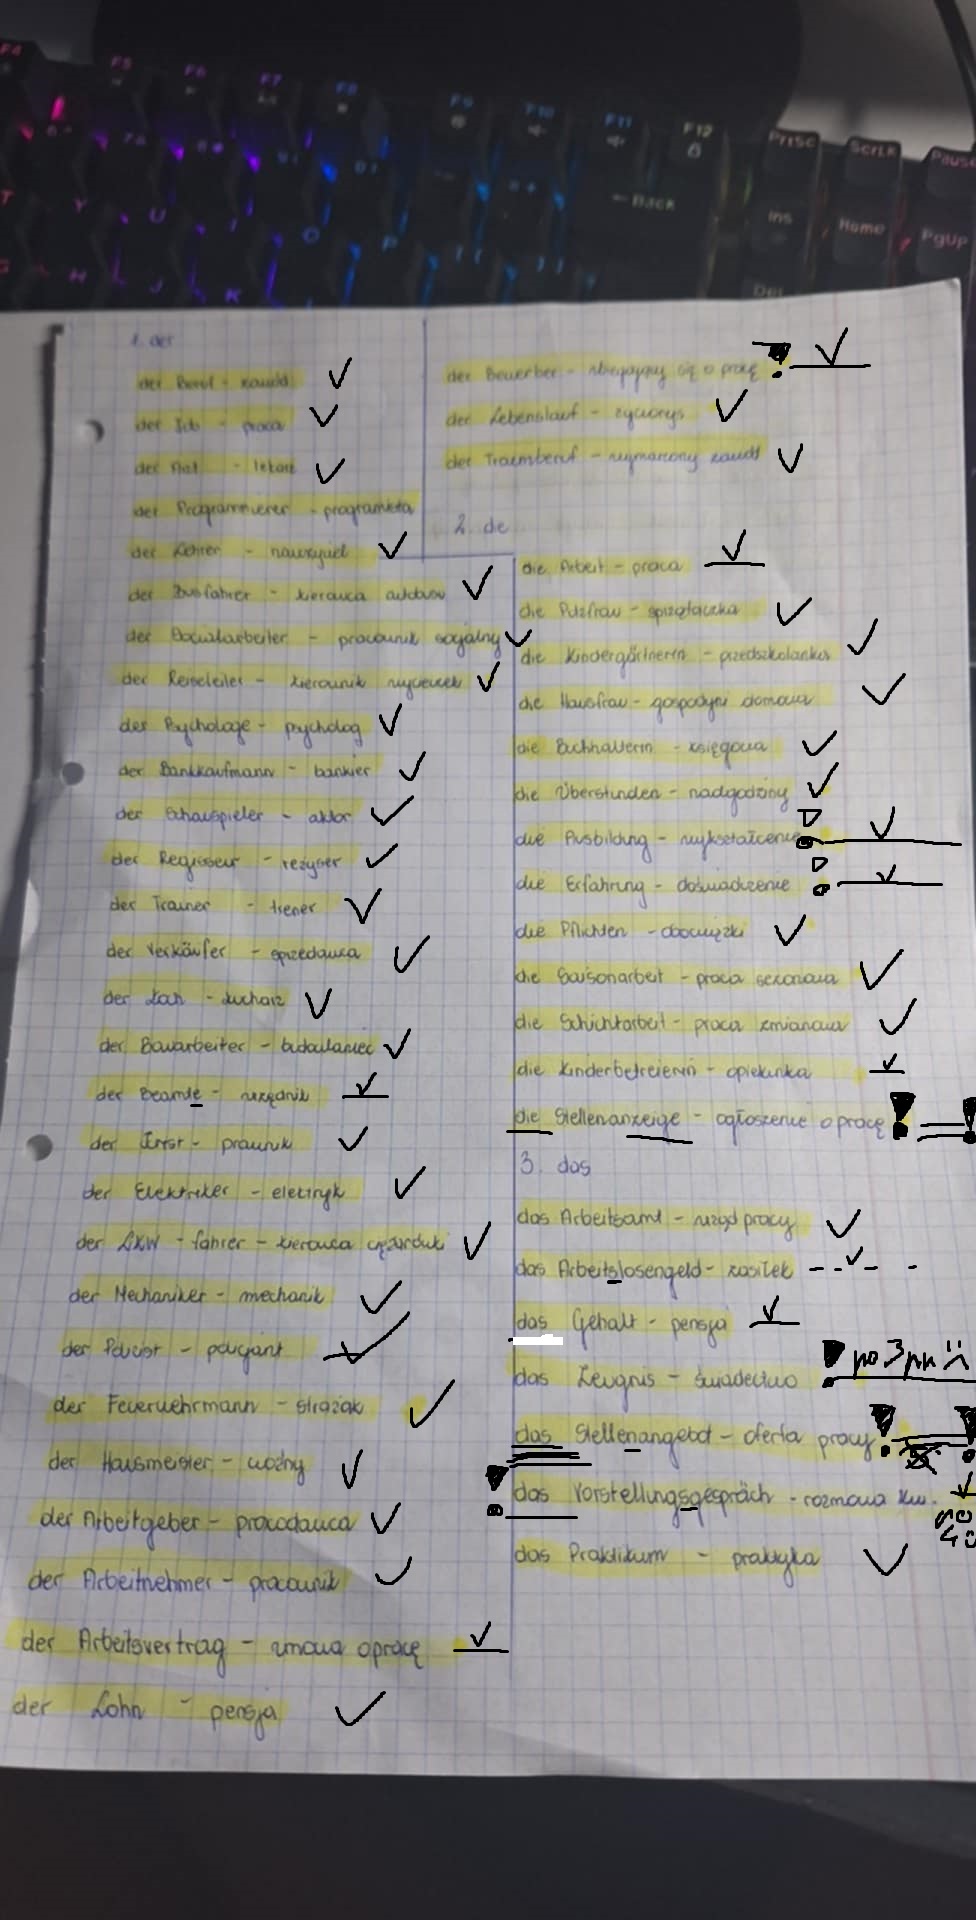 F4
F5
F6
F7
F8
F9
F10
F11
F12
PrtSc
ScrLK
Pause
Back
Ins
Home
PgUp
Del
T
Y
U
I
O
P
G
H
J
K
1. der
der Beruf - zawód
der Job - praca
der Arzt - lekarz
der Programmierer - programista
der Lehrer - nauczyciel
der Busfahrer - kierowca autobusu
der Socialarbeiter - pracownik socjalny
der Reiseleiter - kierownik wycieczek
der Psychologe - psycholog
der Bankkaufmann - bankier
der Schauspieler - aktor
der Regisseur - reżyser
der Trainer - trener
der Verkäufer - sprzedawca
der Koch - kucharz
der Bauarbeiter - budowlaniec
der Beamte - urzędnik
der - prawnik
der Elektriker - elektryk
der LKW - fahrer - kierowca ciężarówki
der Mechaniker - mechanik
der Polizist - policjant
der Feuerwehrmann - strażak
der Hausmeister - woźny
der Arbeitgeber - pracodawca
der Arbeitnehmer - pracownik
der Arbeitsvertrag - umowa o pracę
der Lohn - pensja
der Bewerber - ubiegający się o pracę
der Lebenslauf - życiorys
der Traumberuf - wymarzony zawód
2. die
die Arbeit - praca
die Putzfrau - sprzątaczka
die Kindergärtnerin - przedszkolanka
die Hausfrau - gospodyni domowa
die Buchhalterin - księgowa
die Überstunden - nadgodziny
die Ausbildung - wykształcenie
die Erfahrung - doświadczenie
die Pflichten - obowiązki
die Saisonarbeit - praca sezonowa
die Schichtarbeit - praca zmianowa
die Kinderbetreierin - opiekunka
die Stellenanzeige - ogłoszenie o pracę
3. das
das Arbeitsamt - urząd pracy
das Arbeitslosengeld - zasiłek
das Gehalt - pensja
das Zeugnis - świadectwo
das Stellenangebot - oferta pracy
das Vorstellungsgespräch - rozmowa kw.
das Praktikum - praktyka